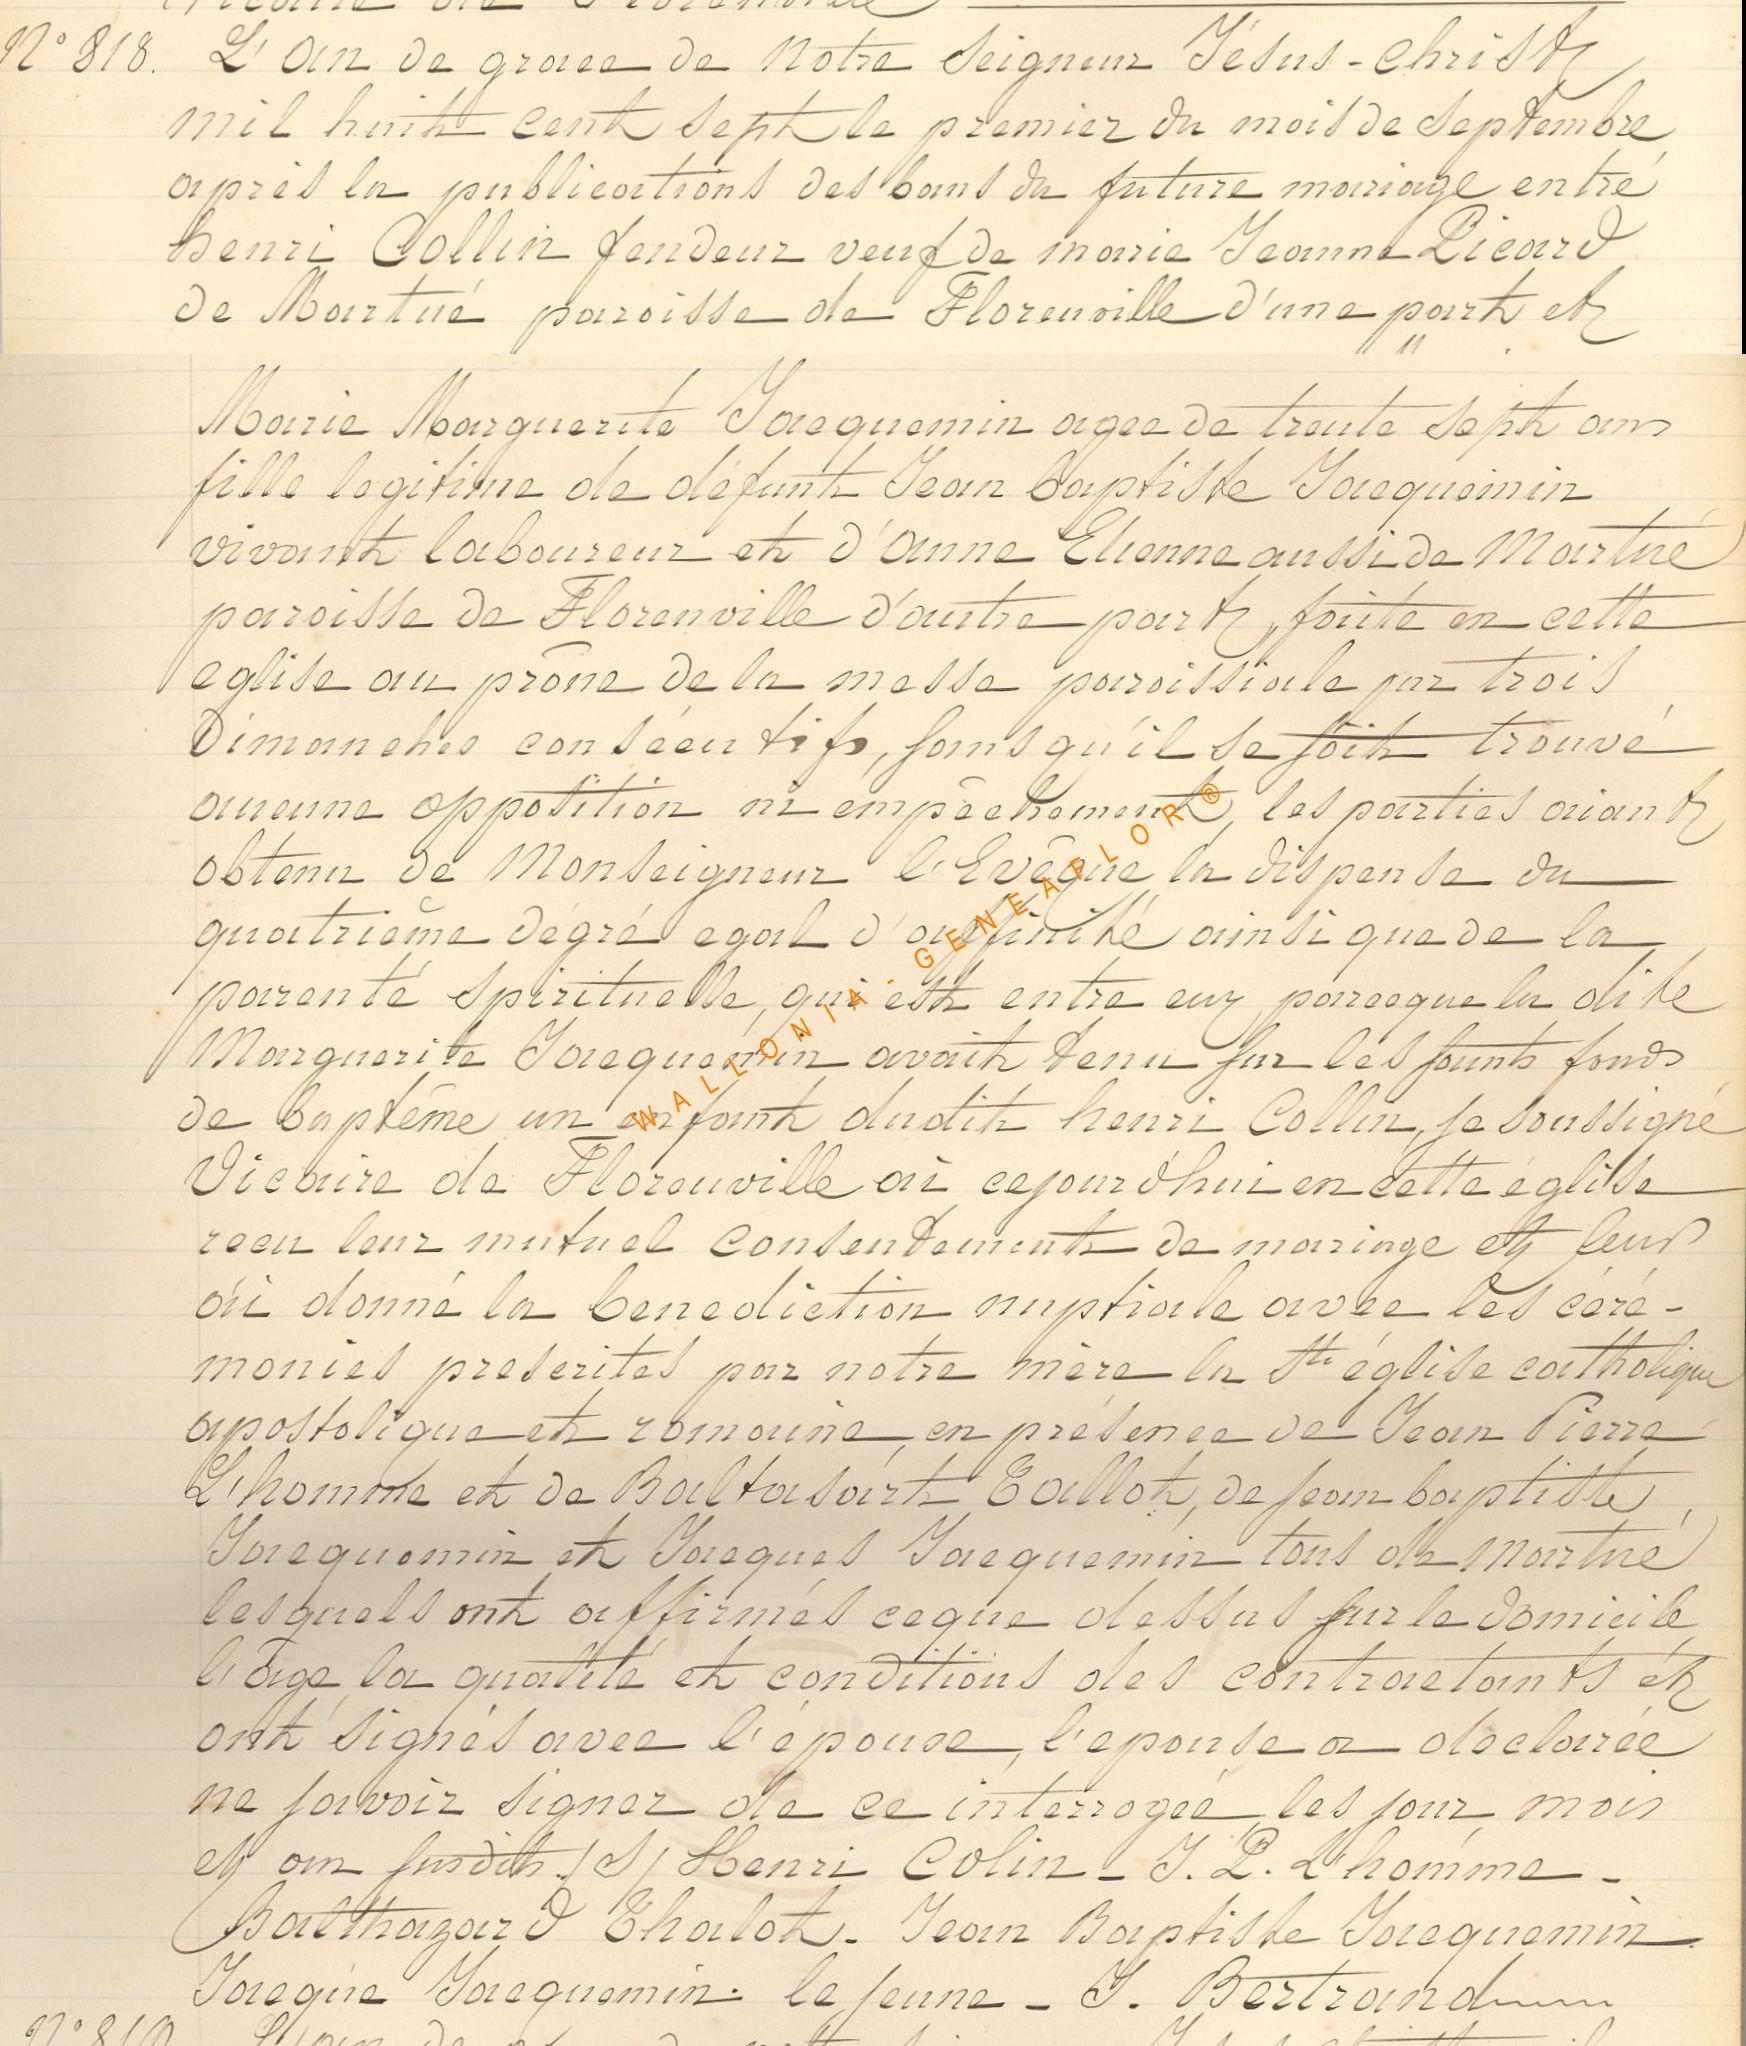 N° 818. L'an de grace de Notre Seigneur Jésus-Christ
mil huit cent sept le premier du mois de Septembre
après la publications des bans du future mariage entre
henri Collin fendeur veuf de marie Jeanne Picard
de Martué paroisse de Florenville d'une part et
Marie Marguerite Jacquemin agee de trente sept ans
fille legitime de défunt Jean baptiste Jacquemin
vivant laboureur et d'anne Etienne aussi de Martué
paroisse de Florenville d'autre part, faite en cette
eglise au prône de la messe paroissiale par trois
Dimanches consécutifs, sans qu'il se soit trouvé
aucune opposition ni empêchement, les parties aiant
obtenu de Monseigneur l'Evêque la dispense du
quatrième dégré egal d'affinité ainsi que de la
parenté spirituelle, qui est entre eux parceque la dite
Marguerite Jacquemin avait tenu sur les saints fonds
de baptême un enfant dudit henri Collin, je soussigné
Vicaire de Florenville ai cejourd'hui en cette église
recu leur mutuel consentement de mariage et leur
ai donné la benediction nuptiale avec les céré-
monies prescrites par notre mère la Ste église catholique
apostolique et romaine, en présence de Jean Pierre
L'homme et de Baltasart Tallot, de jean baptiste
Jacquemin et Jacques Jacquemin tous de Martué
lesquels ont affirmés ceque dessus sur le domicile
l'âge la qualité et conditions des contractants et
ont signés avec l'épouse, l'epouse a declarée
ne savoir signer de ce interrogée les jour mois
et an susdits. (S) Henri Colin - J. P. L'homme -
Balthazard Thalot - Jean Baptiste Jacquemin -
Jacque Jacquemin. le jeune - J. Bertrand
N° 819. L'an de
WALLONIA - GENEAFLOR ®